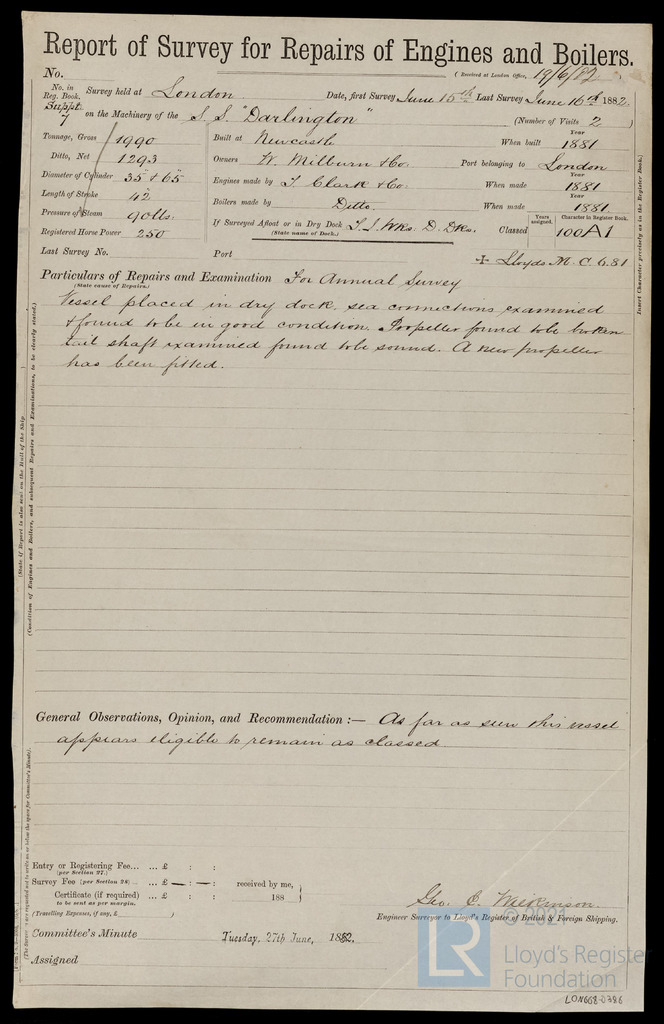 Report of Survey for Repairs of Engines and Boilers.
No. (Received at London Office, 19/6/82
No. in Reg. Book. Survey held at London Date, first Survey June 15th Last Survey June 16th 1882.
Suppt 7 on the Machinery of the S.S. "Darlington" (Number of Visits 2)
Tonnage, Gross 1990 Built at Newcastle When built Year 1881
Ditto, Net 1293 Owners W. Milburn & Co. Port belonging to London
Diameter of Cylinder 35 & 65 Engines made by J. Clark & Co. When made Year 1881
Length of Stroke 42 Boilers made by Ditto. When made Year 1881.
Pressure of Steam 90lbs.
Registered Horse Power 250 If Surveyed Afloat or in Dry Dock (State name of Dock.) Wks. D. Dks. Classed Years assigned. Character in Register Book. 100A1
Last Survey No. Port ✠ Lloyds M.C. 6.81
Particulars of Repairs and Examination For Annual Survey
(State cause of Repairs.)
Vessel placed in dry dock, sea connections examined
& found to be in good condition. Propeller found to be broken
tail shaft examined found to be sound. A new propeller
has been fitted.
(State if Report is also sent on the Hull of the Ship
(Condition of Engines and Boilers, and subsequent Repairs and Examinations, to be clearly stated.)
Insert Character precisely as in the Register Book.
General Observations, Opinion, and Recommendation :— As far as seen this vessel
appears eligible to remain as classed
Entry or Registering Fee... ... £ : :
(per Section 27.)
Survey Fee (per Section 28) ... £ — : — : received by me,
Certificate (if required) ... £ : : 188
to be sent as per margin.
(Travelling Expenses, if any, £ )
Geo. C. Wilkinson.
Engineer Surveyor to Lloyd's Register of British & Foreign Shipping.
Committee's Minute Tuesday, 27th June, 1882.
Assigned
© 2021
LR Lloyd's Register
Foundation
LON668-0386